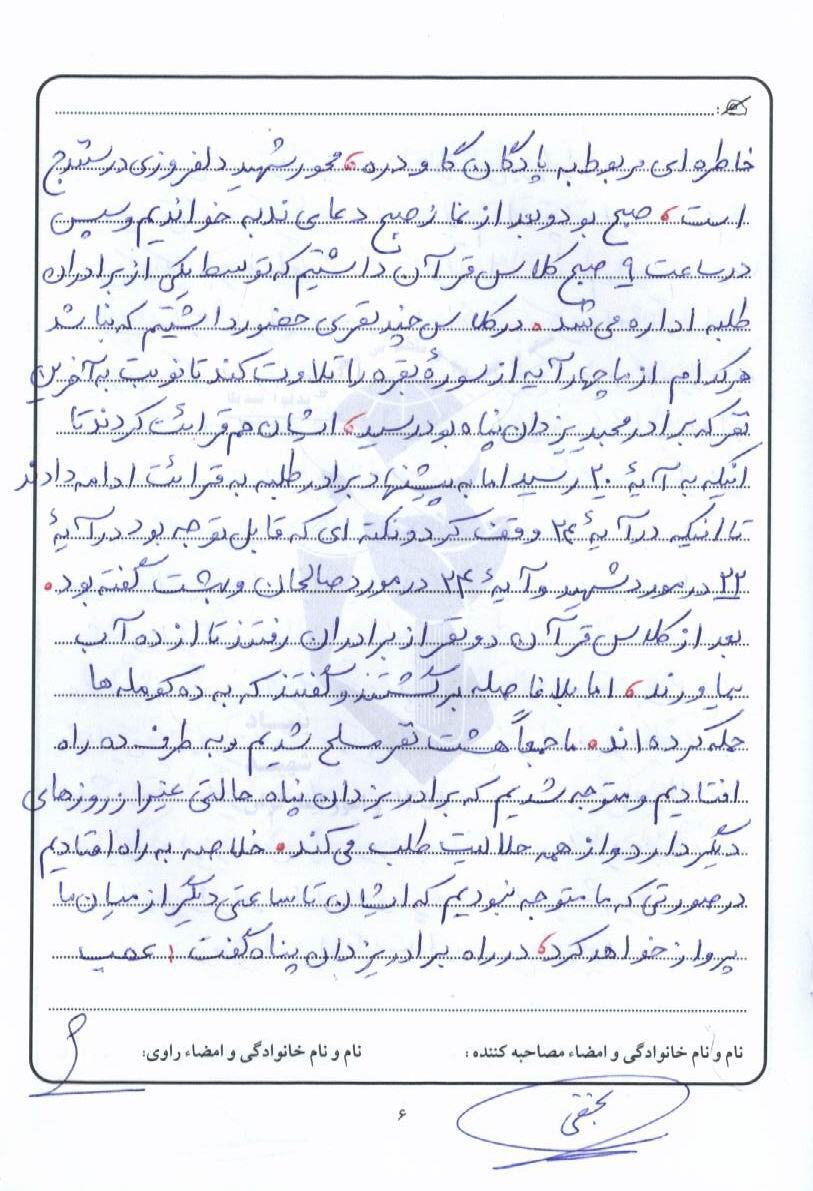 خاطره ای مربوط به پادگان گاودره، محور شهید دلفروزی در سنندج
است، صبح بود و بعد از نماز صبح دعای ندبه خواندیم و سپس
در ساعت ۹ صبح کلاس قرآن داشتیم که توسط یکی از برادران
طلبه اداره می شد. در کلاس چند نفری حضور داشتیم که بنا شد
هر کدام از ما چهار آیه از سورهٔ بقره را تلاوت کند تا نوبت به آخرین
نفر که برادر مجید یزدان پناه بود رسید، ایشان هم قرائت کردند تا
اینکه به آیهٔ ۲۰ رسید اما به پیشنهاد برادر طلبه به قرائت ادامه دادند
تا اینکه در آیهٔ ۲۴ وقف کرد و نکته ای که قابل توجه بود در آیهٔ
۲۲ در مورد شهید و آیهٔ ۲۴ در مورد صالحان و بهشت گفته بود.
بعد از کلاس قرآن دو نفر از برادران رفتند تا از ده آب
بیاورند، اما بلافاصله برگشتند و گفتند که به ده کومله ها
حمله کرده اند. ما جمعاً هشت نفر مسلح شدیم و به طرف ده راه
افتادیم و متوجه شدیم که برادر یزدان پناه حالتی غیر از روزهای
دیگر دارد و از همه حلالیت طلب می کند. خلاصه به راه افتادیم
در صورتی که ما متوجه نبودیم که ایشان تا ساعتی دیگر از میان ما
پرواز خواهد کرد، در راه برادر یزدان پناه گفت: عجب
نام و نام خانوادگی و امضاء مصاحبه کننده: نام و نام خانوادگی و امضاء راوی:
نجفی
۶